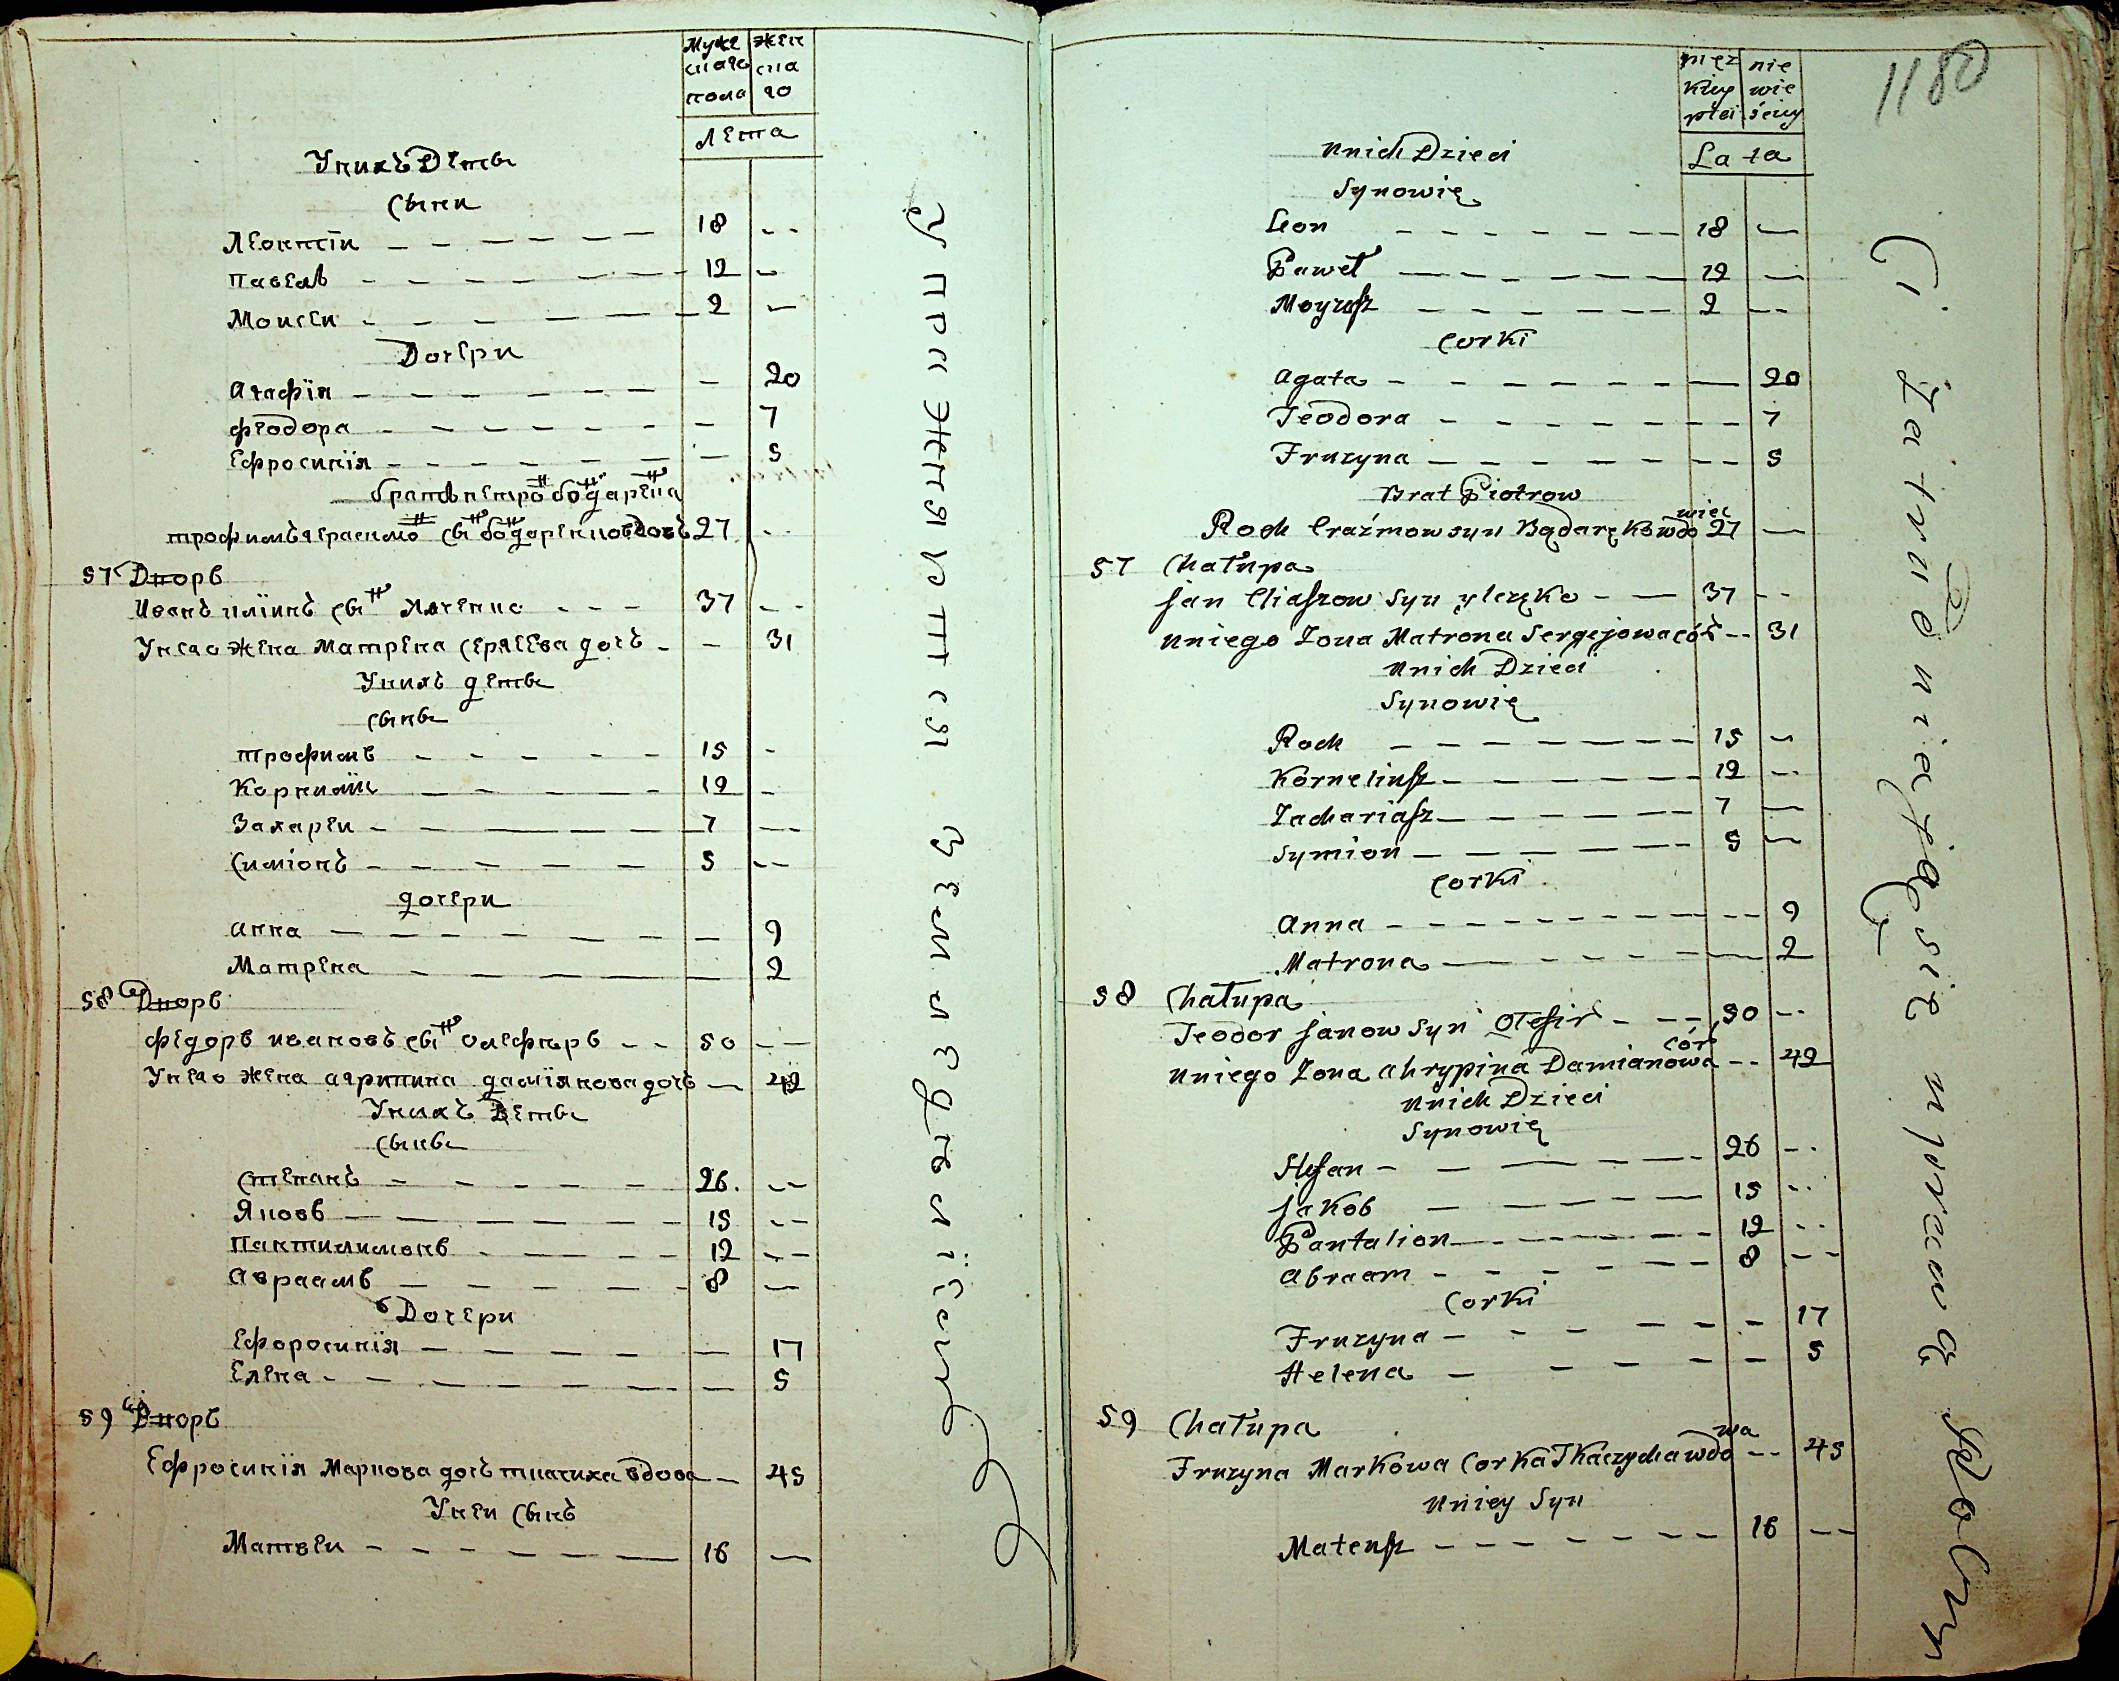 Мужескаго пола
Женскаго
Лета
Унихъ Дети
Сыни
Леонтїи – 18 –
Павелъ – 12 –
Моисеи – 2 –
Дочери
Агафїя – – 20
Феодора – – 7
Ефросинїя – – 5
братъ петро бодаренка
трофимъ ерасимо сы бодаренко вдовъ 27 –
57 Дворъ
Иванъ илїинъ сы – 37 –
Унего жена Матрена Сергеева дочъ – – 31
Унихъ дети
сыны
трофимъ – 15 –
Корнилїи – 12 –
Захареи – 7 –
Симїонъ – 5 –
дочери
анна – – 9
Матрена – – 2
58 Дворъ
Федоръ ивановъ сы олефиръ – 50 –
Унего жена агрипина дамїянова дочъ – 42
Унихъ Дети
Сыны
Степанъ – 26 –
Яковъ – 15 –
Пантилимонъ – 12 –
Авраамъ – 8 –
Дочери
Ефоросинїя – – 17
Елена – – 5
59 Дворъ
Ефросинїя Маркова дочъ ткачиха вдова – 45
Унеи Сынъ
Матвеи – 16 –
Упражняются
1180
męzkiey płci
niewieściey
Lata
Unich Dzieci
Synowię
Leon – 18 –
Paweł – 12 –
Moyzesz – 2 –
Corki
Agata – – 20
Teodora – – 7
Fruzyna – – 5
Brat Piotrow
Roch Eraźmow syn Bądaręko wdowiec 27 –
57 Chałupa
Jan Eliaszow Syn – 37 –
Uniego Zona Matrona Sergejowa cór – – 31
Unich Dzieci
Synowię
Roch – 15 –
Korneliusz – 12 –
Zachariasz – 7 –
Symion – 5 –
Corki
Anna – – 9
Matrona – – 2
58 Chałupa
Teodor Janow Syn Olefir – 50 –
Uniego Zona Ahrypina Damianowa cór – – 42
Unich Dzieci
Synowię
Stefan – 26 –
Jakob – 15 –
Pantalion – 12 –
Abraam – 8 –
Corki
Fruzyna – – 17
Helena – – 5
59 Chałupa
Fruzyna Markowa Corka Tkaczycha wdowa – – 45
Uniey Syn
Mateusz – 16 –
Ci Zatrudniają się uprawą Roczy